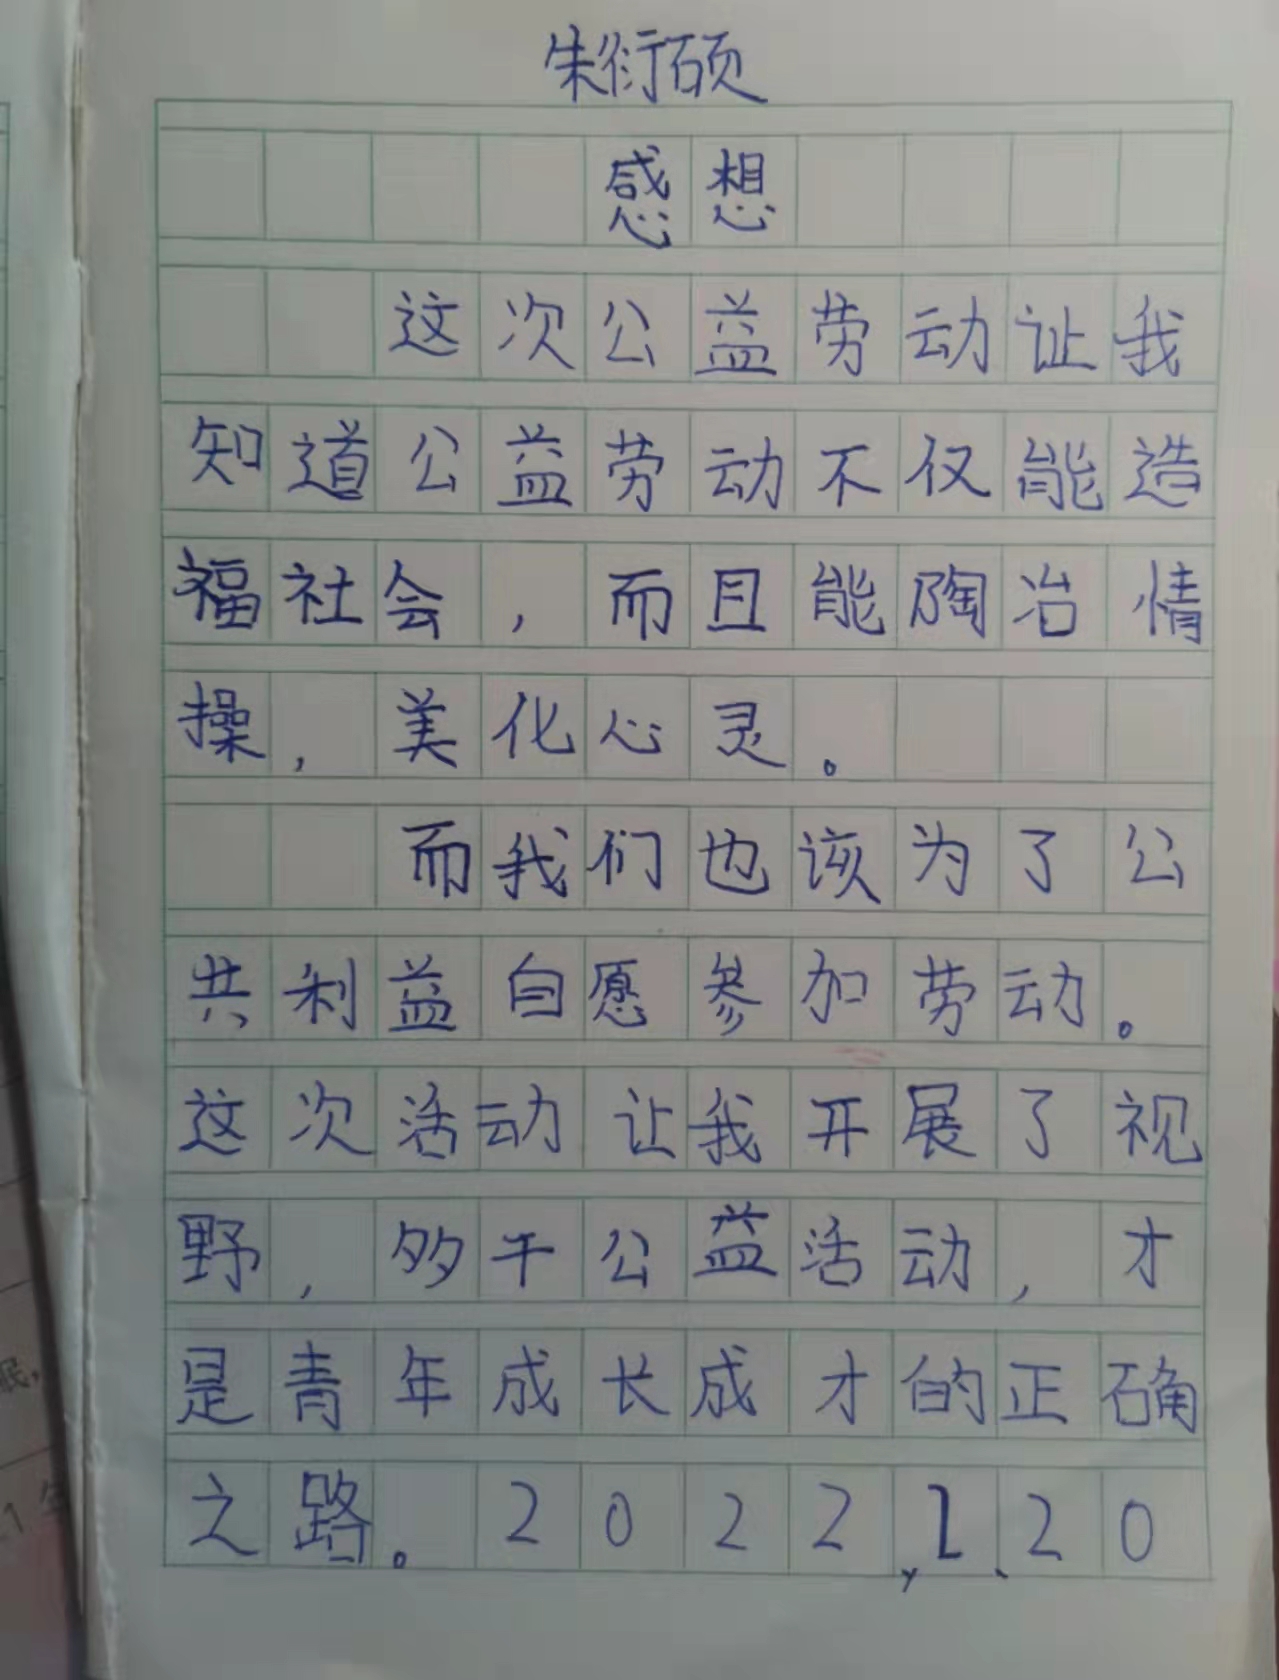 朱衍硕
感想
这次公益劳动让我
知道公益劳动不仅能造
福社会，而且能陶冶情
操，美化心灵。
而我们也该为了公
共利益自愿参加劳动。
这次活动让我开展了视
野，多干公益活动，才
是青年成长成才的正确
之路。2022.1.20